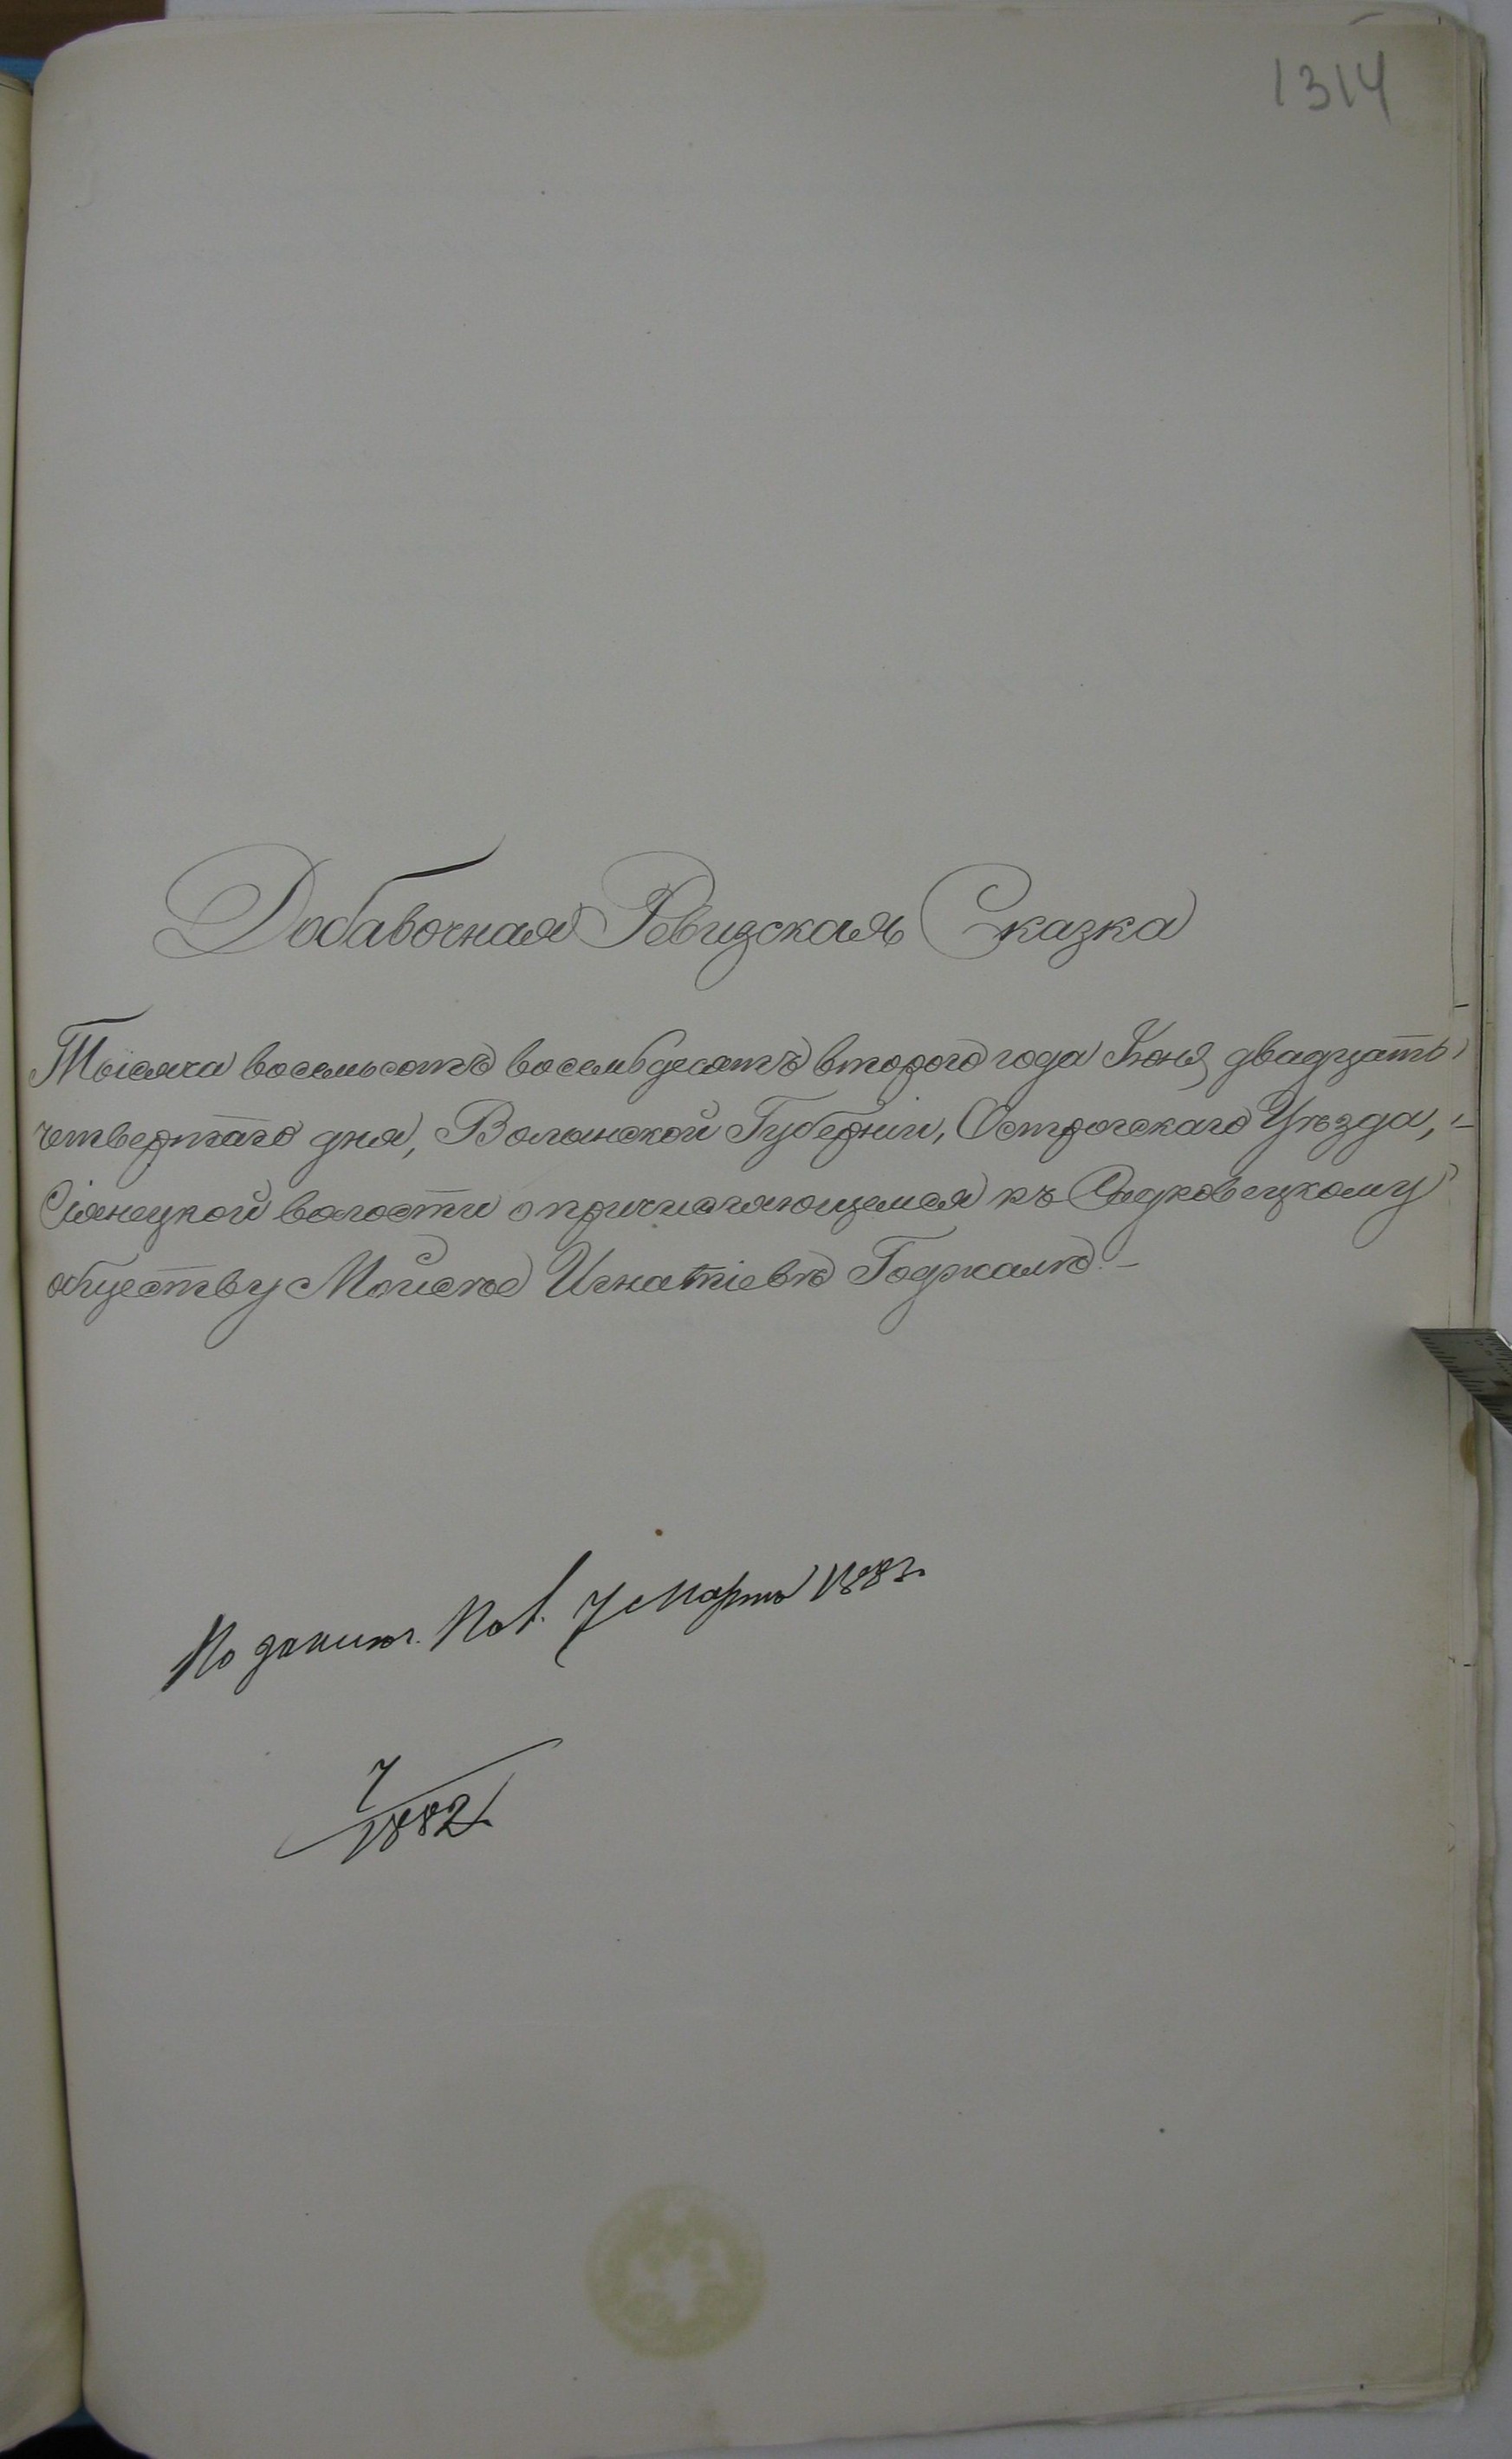 1314
Добавочная Ревизская Сказка
Тысяча восемьсотъ восембдесятъ второго года Іюня двадцать
четвертаго дня, Волынской Губерніи, Острогскаго Уѣзда,
Сіянецкой волости о причисляющемся къ Садковецкому
обществу Мойсѣе Игнатіевѣ Годжалѣ. —
По заключ. 7 Марта 188
7
1882